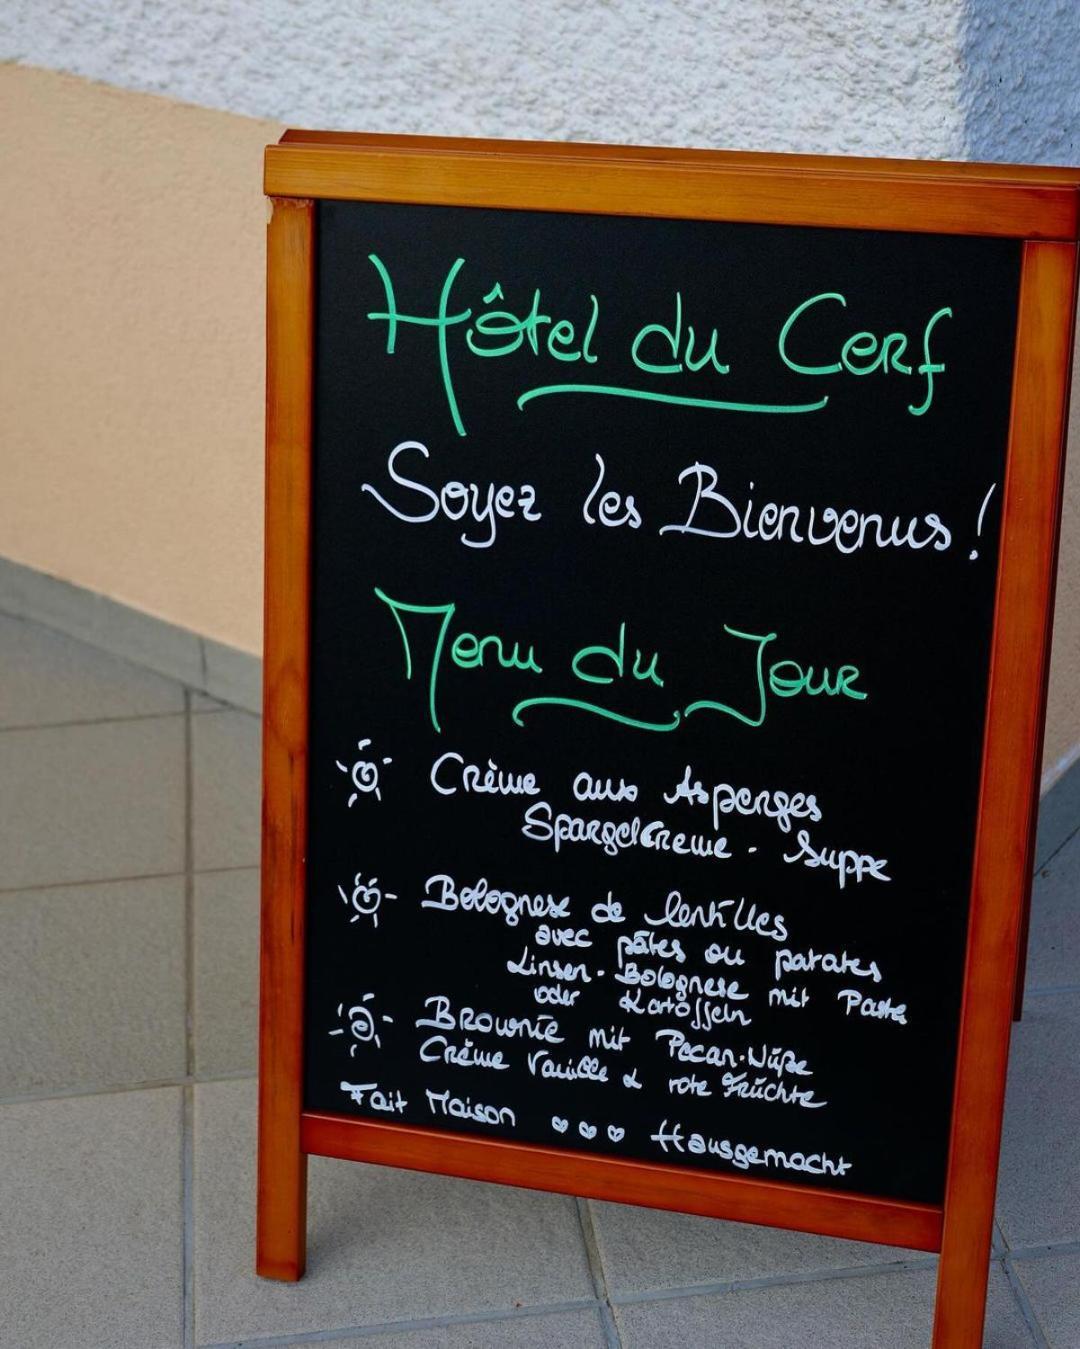 Hôtel du Cerf
Soyez les Bienvenus !
Menu du Jour
Crème aux Asperges
Spargelcreme - Suppe
Bolognese de lentilles
avec pâtes ou patates
Linsen-Bolognese mit Pasta
oder Kartoffeln
Brownie mit Pecan-Nüße
Crème Vanille & rote Früchte
Fait Maison Hausgemacht